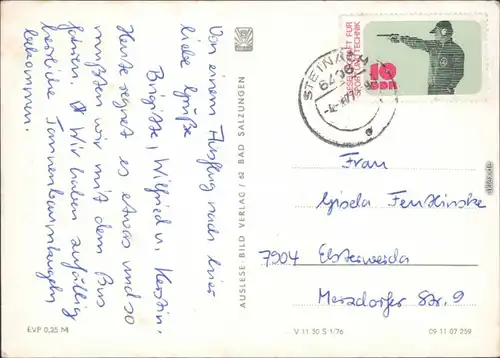 Von einem Ausflug nach hier
liebe Grüße
Brigitte, Wilfried u. Kerstin.
Heute regnet es etwas und so
mußten wir mit dem Bus
fahren. Wir haben zufällig
herrliche Tannenbaumkugeln
bekommen.
EVP 0,25 M
AUSLESE-BILD VERLAG / 62 BAD SALZUNGEN
STEINACH
GESELLSCHAFT FÜR
SPORT UND TECHNIK
10
DDR
Frau
Gisela
7904 Elsterwerda
Merzdorfer Str. 9
V 11 50 S 1/76
09 11 07 259